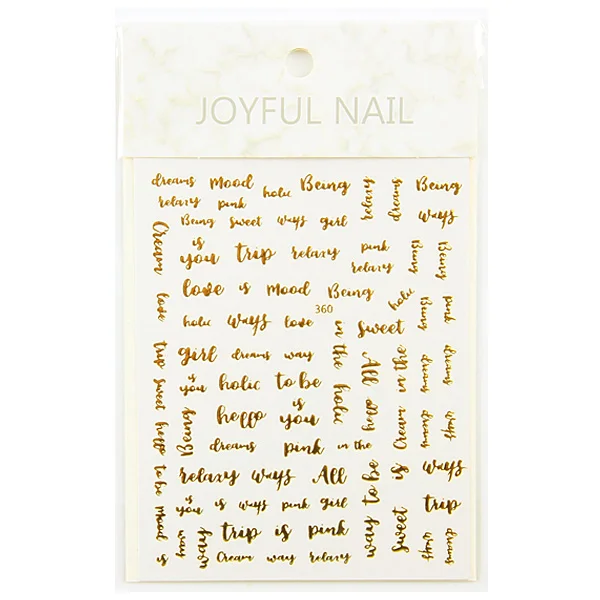 JOYFUL NAIL
dreams Mood holic Being relaxy dreams Being
relaxy pink
Being sweet ways girl ways
Cream is you trip relaxy pink Being Being
relaxy
love is Mood Being holic Being pink
360
love holic ways love in the holic sweet
trip girl dreams way All Cream in the dreams dreams
sweet is you holic to be
hello Being hello is you hello dreams ways
dreams pink in the
to be relaxy ways All way to be is ways
Mood is is you is ways pink girl sweet trip
way trip is pink ways dreams
Cream way relaxy